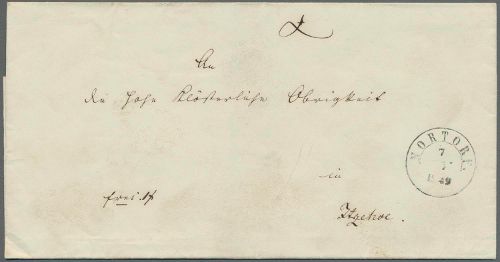 An
die hohe Klösterliche Obrigkeit
in
Itzehoe.
frei
NORTORF.
7
7
1849